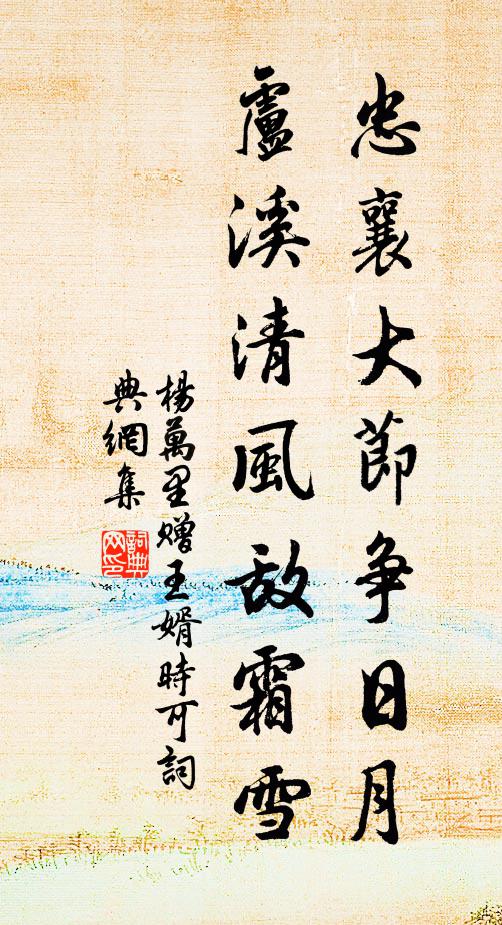 忠襄大節争日月
盧溪清風敌霜雪
楊萬里贈王婿時可詞
典網集
詞典
网印